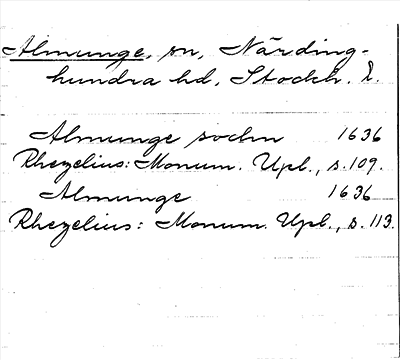 Almunge, sn, Närding-
hundra hd, Stockh. L.
Almunge sochn 1636
Rhezelius: Monum. Upl., s. 109.
Almunge 1636
Rhezelius: Monum. Upl., s. 113.